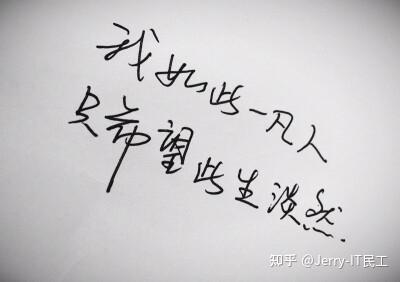 我如此一凡人
只希望此生淡然.
知乎 @Jerry-IT民工